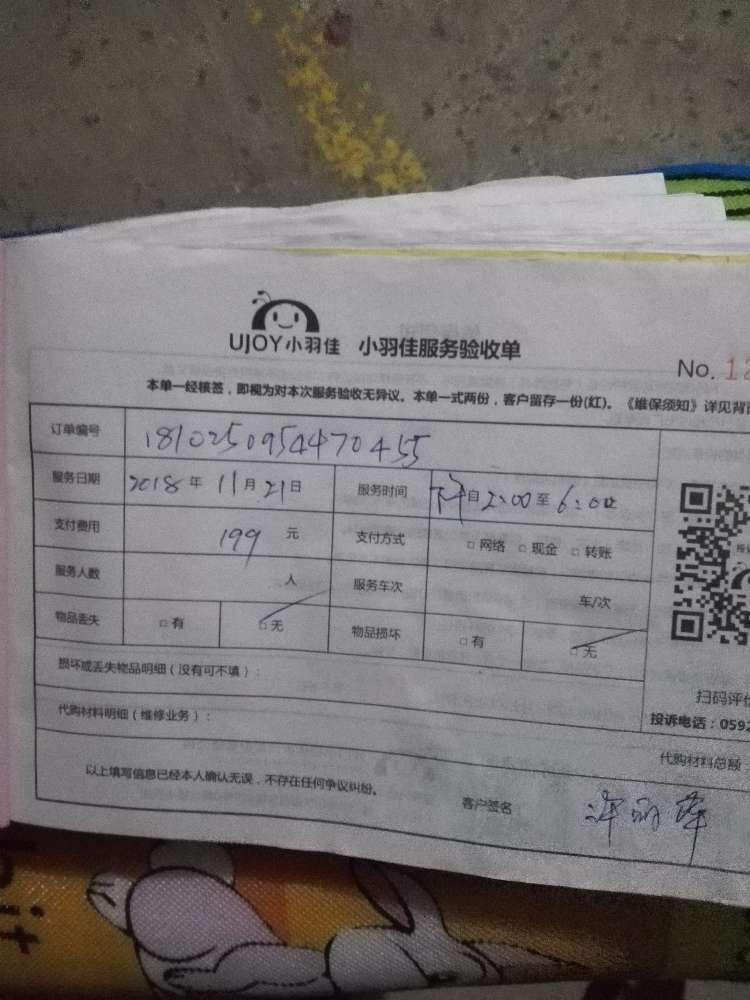 UJOY小羽佳 小羽佳服务验收单
No. 12
本单一经核签，即视为对本次服务验收无异议。本单一式两份，客户留存一份(红)。《维保须知》详见背面
订单编号 1810250954470455
服务日期 2018年 11月 21日 服务时间 下午自2:00至6:00
支付费用 199 元 支付方式 □网络 □现金 □转账
服务人数 人 服务车次 车/次
物品丢失 □有 □无 物品损坏 □有 □无
损坏或丢失物品明细（没有可不填）：
扫码评价
代购材料明细（维修业务）：
投诉电话：0592
代购材料总额
以上填写信息已经本人确认无误，不存在任何争议纠纷。
客户签名：许丽萍
bit